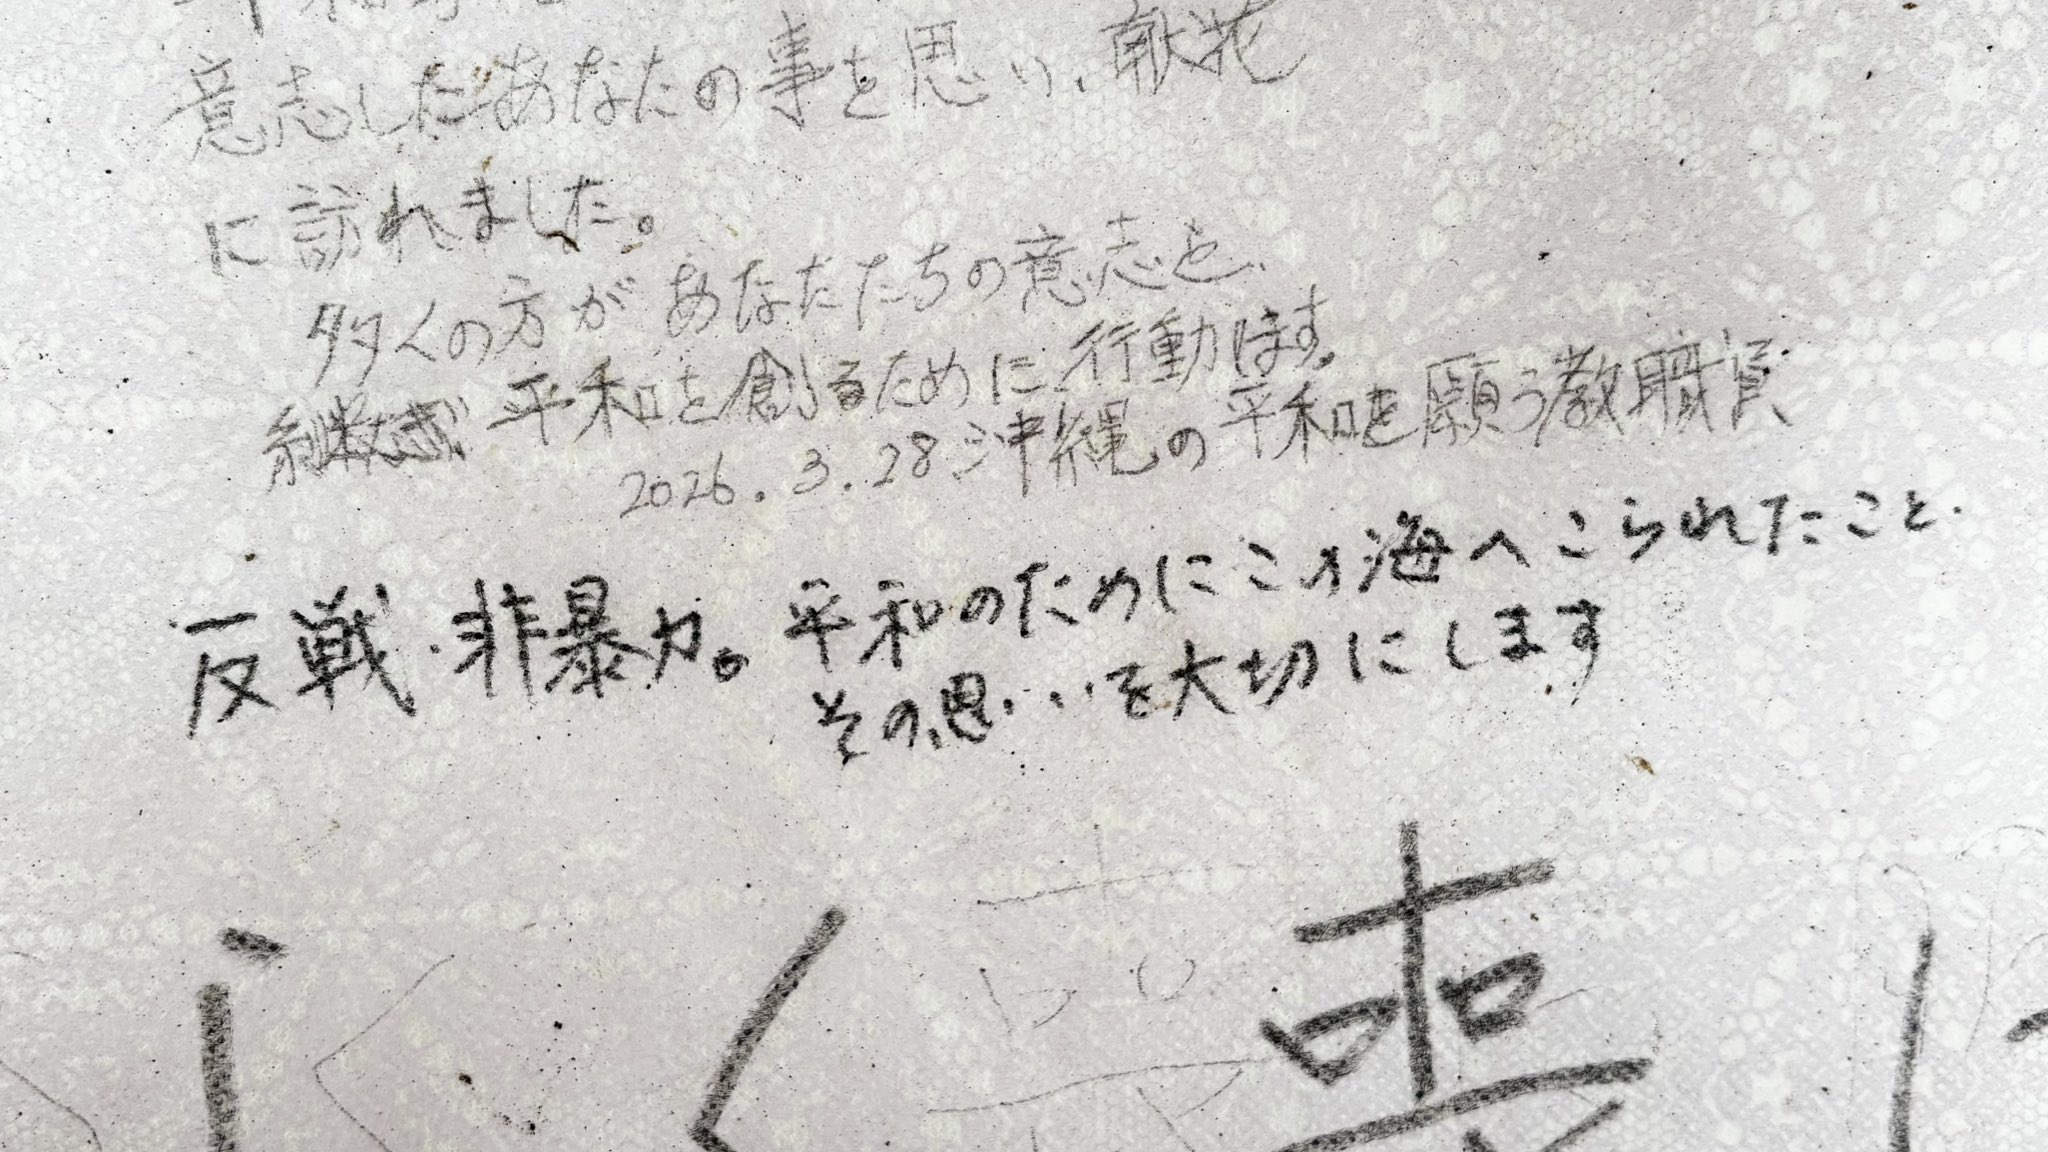 意志したあなたの事を思い、献花
に訪れました。
多くの方があなたたちの意志を
平和を創るために行動します。
2026.3.28 沖縄の平和を願う教職員
反戦・非暴力。平和のためにこの海へこられたこと.
その思いを大切にします